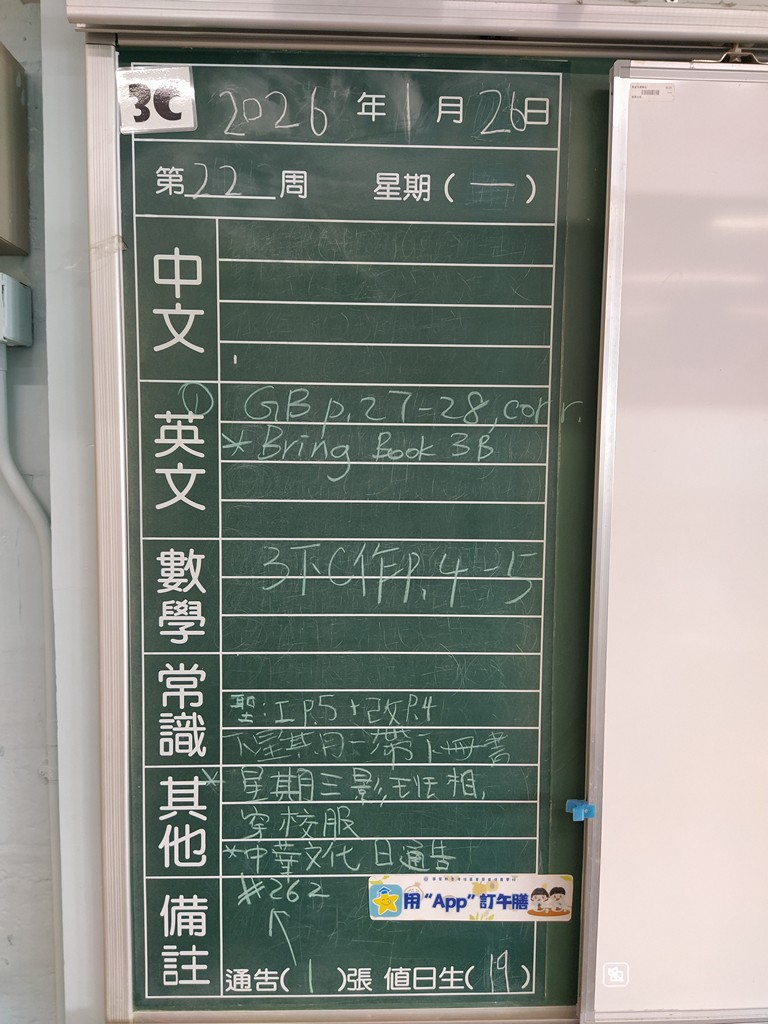 3C
2026年1月26日
第22周 星期(一)
中文
英文
① GB p.27-28, corr.
* Bring Book 3B
數學
3下C作P.4-5
常識
聖:工P.5+改P.4
下星期一帶下冊書
其他
* 星期三影班相,
穿校服
*中華文化日通告
備註
#262
用“App”訂午膳
通告(1)張 值日生(19)